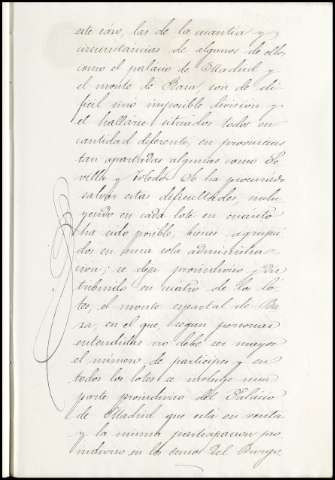 este caso, las de la cuantia y
circunstancias de algunos de ellos
como el palacio de Madrid y
el monte de Bara, son de di-
ficil sinó imposible division y
el hallarse situados todos en
cantidad diferente, en provincias
tan apartadas algunas como Se-
villa y Toledo. Se ha procurado
salvar estas dificultades, inclu-
yendo en cada lote en cuanto
ha sido posible, bienes agrupa-
dos en una sola administra-
cion; se deja proindiviso, dis-
tribuido en cuatro de los lo-
tes, el monte espartal de Ba-
ra, en el que, segun personas
entendidas no debe ser mayor
el número de participes y en
todos los lotes se incluye una
parte proindiviso del Palacio
de Madrid que está en venta
y la misma participacion pro
indiviso en los censos del Burgo